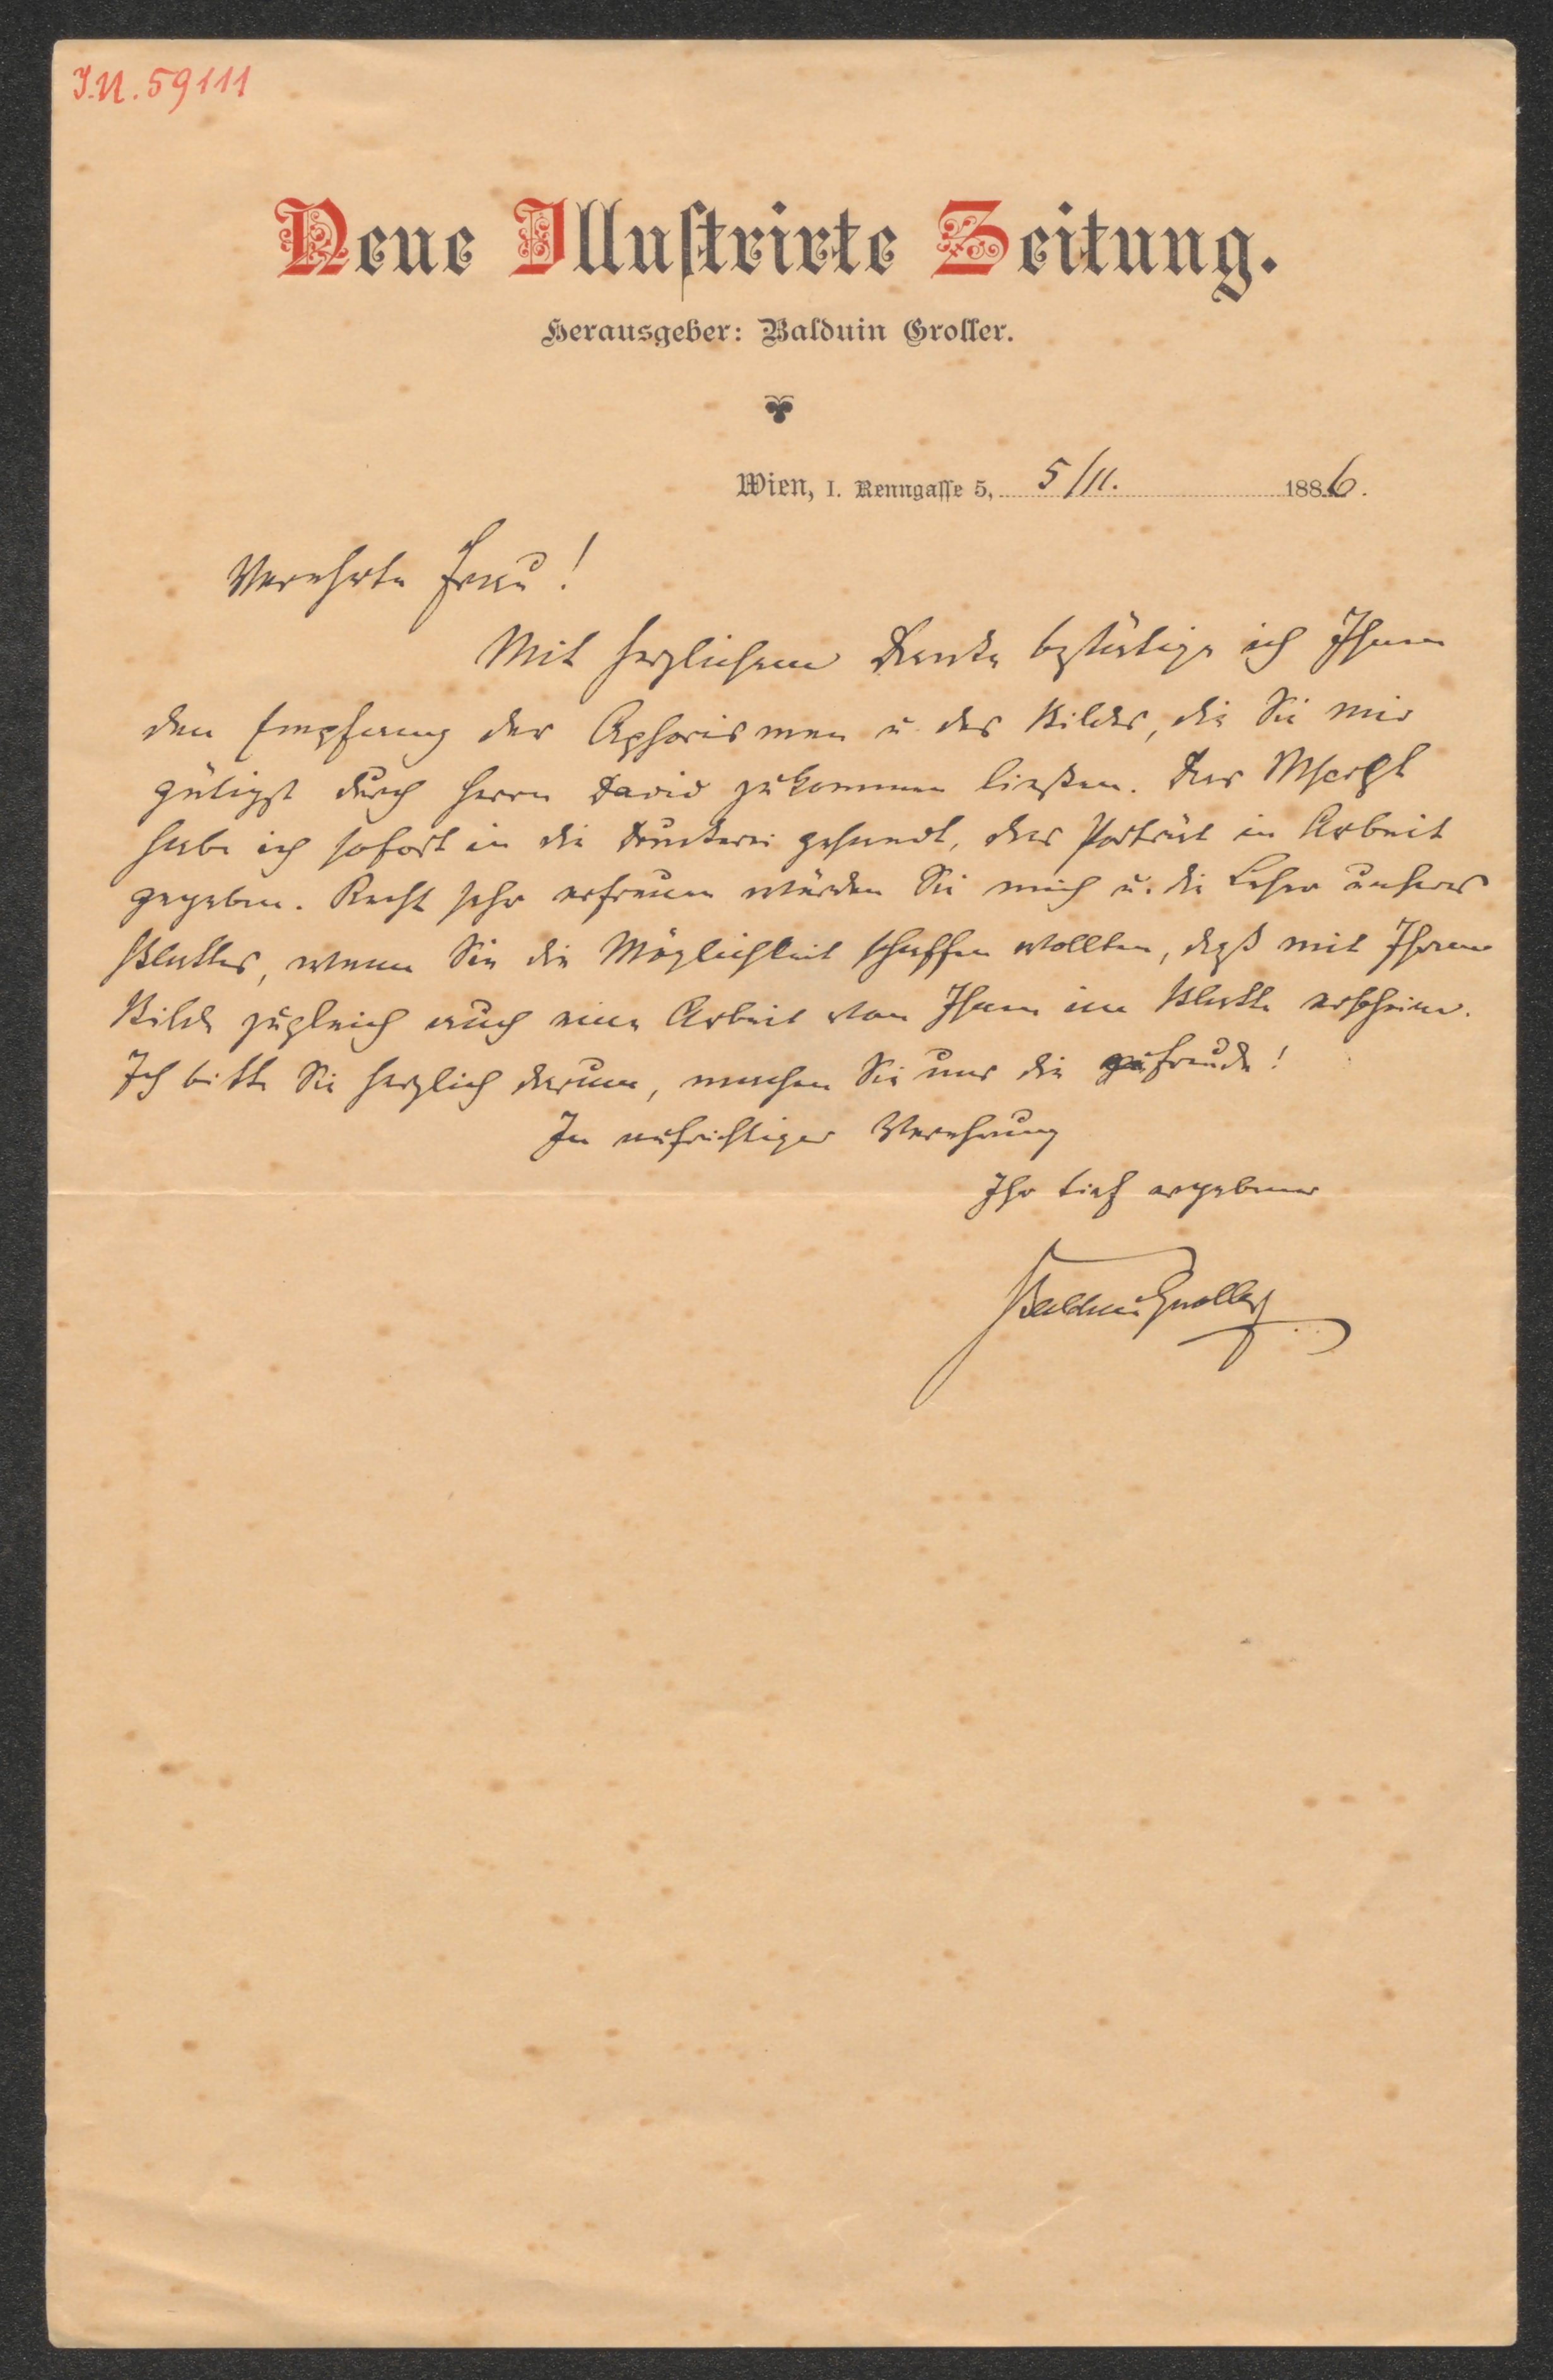 I.N. 59111
Neue Illustrirte Zeitung.
Herausgeber: Balduin Groller.
Wien, I. Renngasse 5, 5/11. 1886.
Verehrte Frau!
Mit herzlichem Danke bestätige ich Ihnen
den Empfang der Aphorismen u. des Bildes, die Sie mir
gütigst durch Herrn David zukommen ließen. Das Mscrpt
habe ich sofort in die Druckerei gesandt, das Porträt in Arbeit
gegeben. Recht sehr erfreuen würden Sie mich u. die Leser unseres
Blattes, wenn Sie die Möglichkeit schaffen wollten, daß mit Ihrem
Bilde zugleich auch eine Arbeit von Ihnen im Blatte erscheine.
Ich bitte Sie herzlich darum, machen Sie uns die Freude!
In aufrichtiger Verehrung
Ihr tief ergebener
Balduin Groller